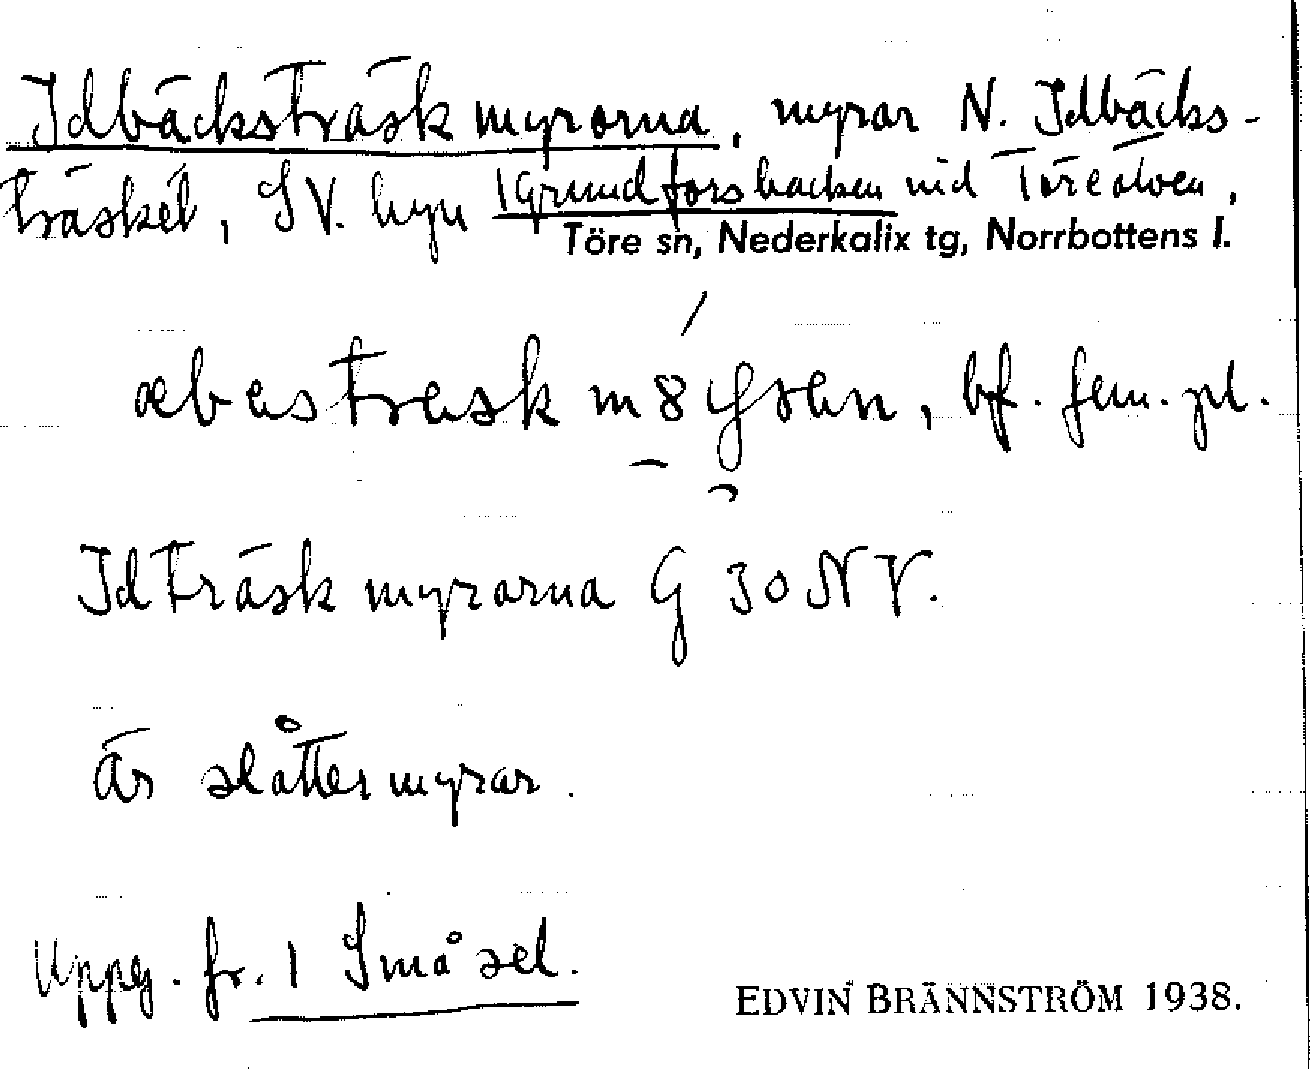 Idbäcksträskmyrorna, myrar N. Idbäcks-
träsket, SV. byn 1 Grundforsbacken vid Töreälven,
Töre sn, Nederkalix tg, Norrbottens l.
bf. fem. pl.
Idträskmyrarna G 30 NV.
är slåttermyrar.
Uppg. fr. 1 Småsel.
EDVIN BRÄNNSTRÖM 1938.